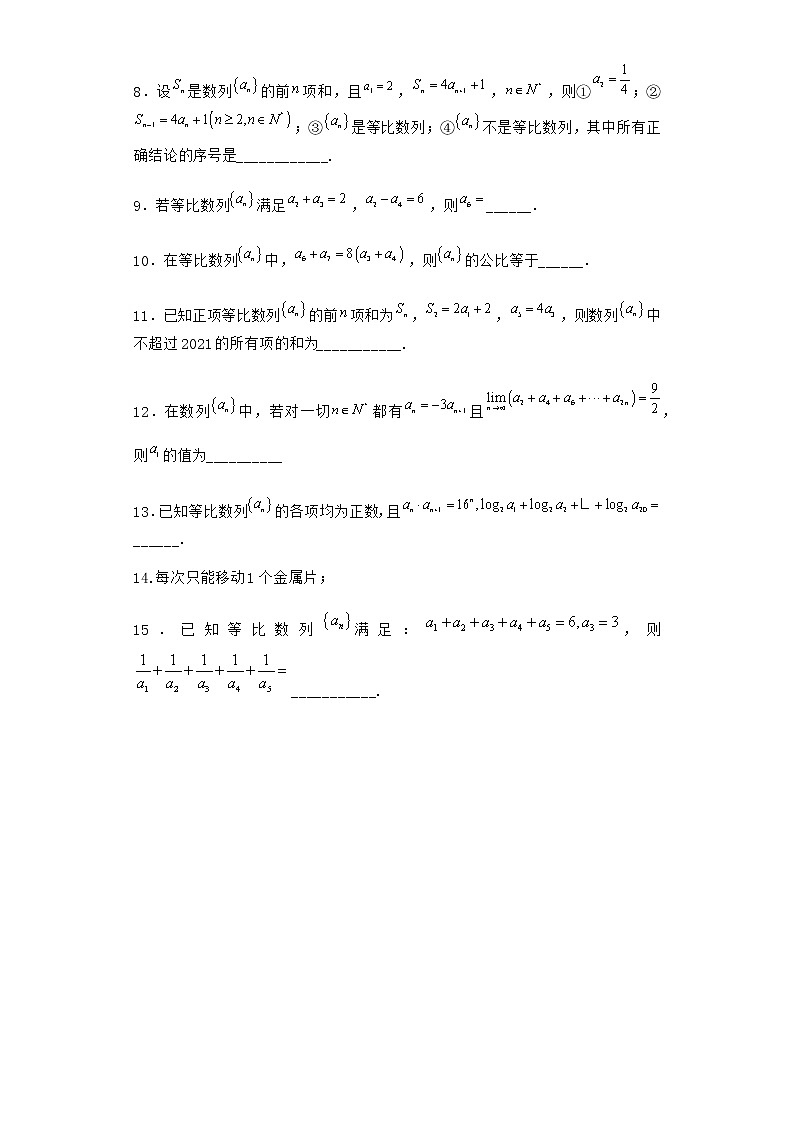 8．设Sₙ是数列{aₙ}的前n项和，且a₁=2，Sₙ=4aₙ₊₁+1，n∈N*，则①a₂=1/4；②
Sₙ₋₁=4aₙ+1(n≥2,n∈N*)；③{aₙ}是等比数列；④{aₙ}不是等比数列，其中所有正
确结论的序号是____________．
9．若等比数列{aₙ}满足a₂+a₃=2，a₂−a₄=6，则a₆=______．
10．在等比数列{aₙ}中，a₆+a₇=8(a₃+a₄)，则{aₙ}的公比等于______．
11．已知正项等比数列{aₙ}的前n项和为Sₙ，S₂=2a₁+2，a₅=4a₃，则数列{aₙ}中
不超过2021的所有项的和为___________．
12．在数列{aₙ}中，若对一切n∈N*都有aₙ=−3aₙ₊₁且lim(n→∞)(a₂+a₄+a₆+⋯+a₂ₙ)=9/2，
则a₁的值为__________
13．已知等比数列{aₙ}的各项均为正数，且aₙ·aₙ₊₁=16ⁿ,log₂a₁+log₂a₂+∟+log₂a₂₀=
______．
14.每次只能移动1个金属片；
15．已知等比数列{aₙ}满足：a₁+a₂+a₃+a₄+a₅=6,a₃=3，则
1/a₁+1/a₂+1/a₃+1/a₄+1/a₅=___________．